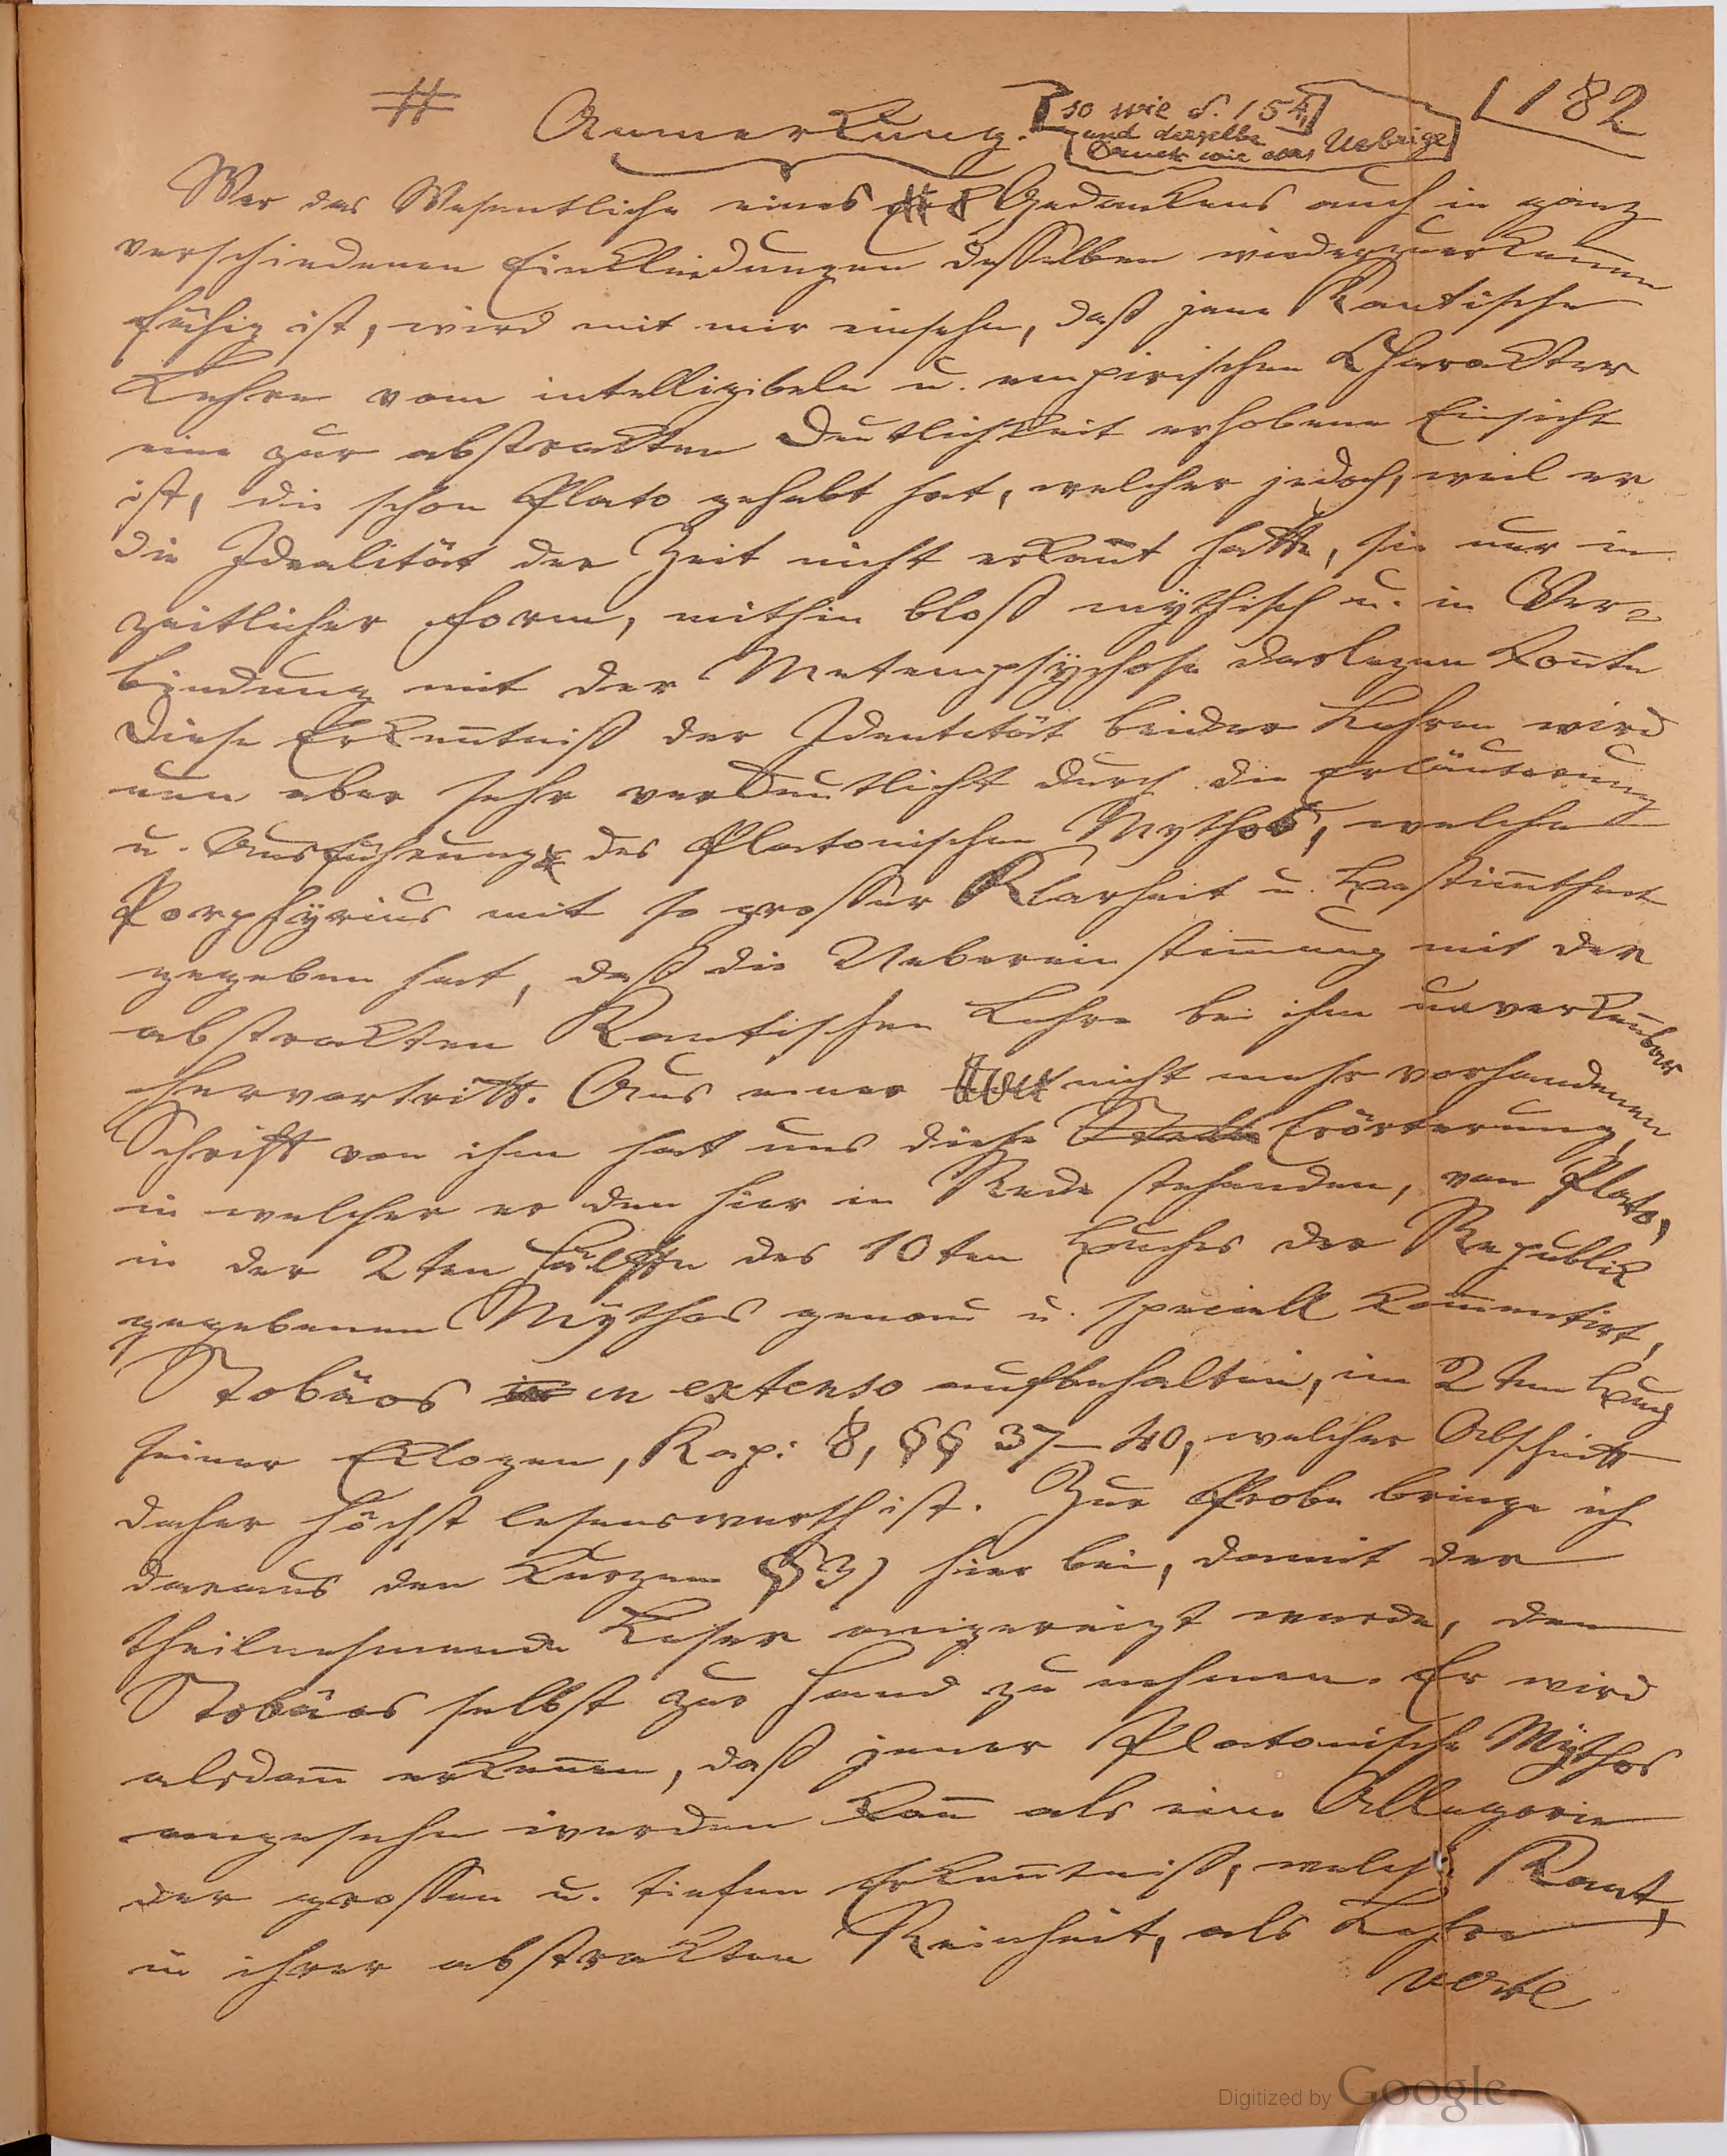 # Anmerkung. [so wie S. 154,] 182
[und derselbe
Druck wie das Uebrige]
Wer das Wesentliche eines Gedankens auch in ganz
verschiedenen Einkleidungen desselben wiederzuerkennen
fähig ist, wird mit mir einsehn, daß jene Kantische
Lehre vom intelligibeln u. empirischen Charakter
eine zur abstrakten Deutlichkeit erhobene Einsicht
ist, die schon Plato gehabt hat, welcher jedoch, weil er
die Idealität der Zeit nicht erkannt hatte, sie nur in
zeitlicher Form, mithin bloß mÿthisch u. in Ver=
bindung mit der Metempsÿchose darlegen konnte
Diese Erkenntniß der Identität beider Lehren wird
nun aber sehr verdeutlicht durch die Erläuterung
u. Ausführung des Platonischen Mythos, welche
Porphÿrius mit so großer Klarheit u. Bestimmtheit
gegeben hat, daß die Uebereinstimmung mit der
abstrakten Kantischen Lehre bei ihm unverkennbar
hervortritt. Aus einer nicht mehr vorhandenen
Schrift von ihm hat uns diese Erörterung,
in welcher er den hier in Rede stehenden, von Plato,
in der 2ten Hälfte des 10ten Buches der Republik
gegebenen Mÿthos genau u. speciell kommentirt,
Stobäos in extenso aufbehalten, im 2ten Buch
seiner Eklogen, Kap: 8, §§ 37–40, welcher Abschnitt
daher höchst lesenswerth ist. Zur Probe bringe ich
daraus den kurzen § 39 hier bei, damit der
theilnehmende Leser angereizt werde, den
Stobäos selbst zur Hand zu nehmen. Er wird
alsdann erkennen, daß jener Platonische Mÿthos
angesehn werden kann als eine Allegorie
der großen u. tiefen Erkenntniß, welche Kant,
in ihrer abstrakten Reinheit, als Lehre
verte
Digitized by Google